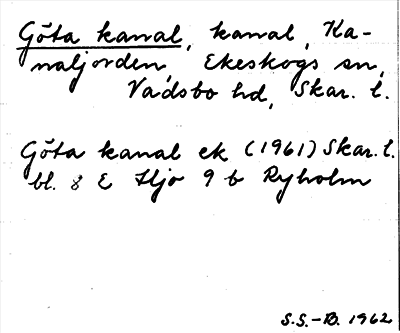 Göta kanal, kanal, Ka-
naljorden, Ekeskogs sn,
Vadsbo hd, Skar. l.
Göta kanal ek (1961) Skar. l.
bl. 8 E Hjo 9 b Ryholm
S.S.-B. 1962